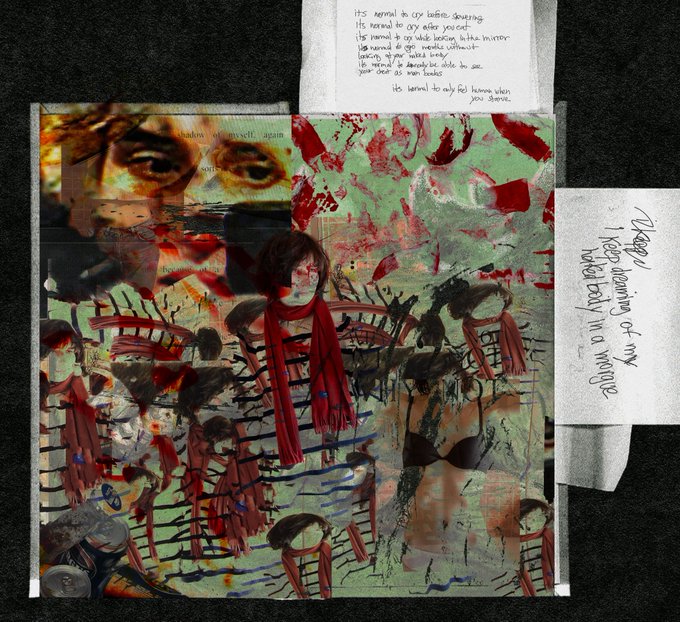 its normal to cry before showering
its normal to cry after you eat
its normal to cry while looking in the mirror
its normal to go months without
looking at your naked body
its normal to only be able to see
your chest as man boobs
its normal to only feel human when
you starve
shadow of myself, again
sorts
I keep dreaming of my
naked body in a morgue